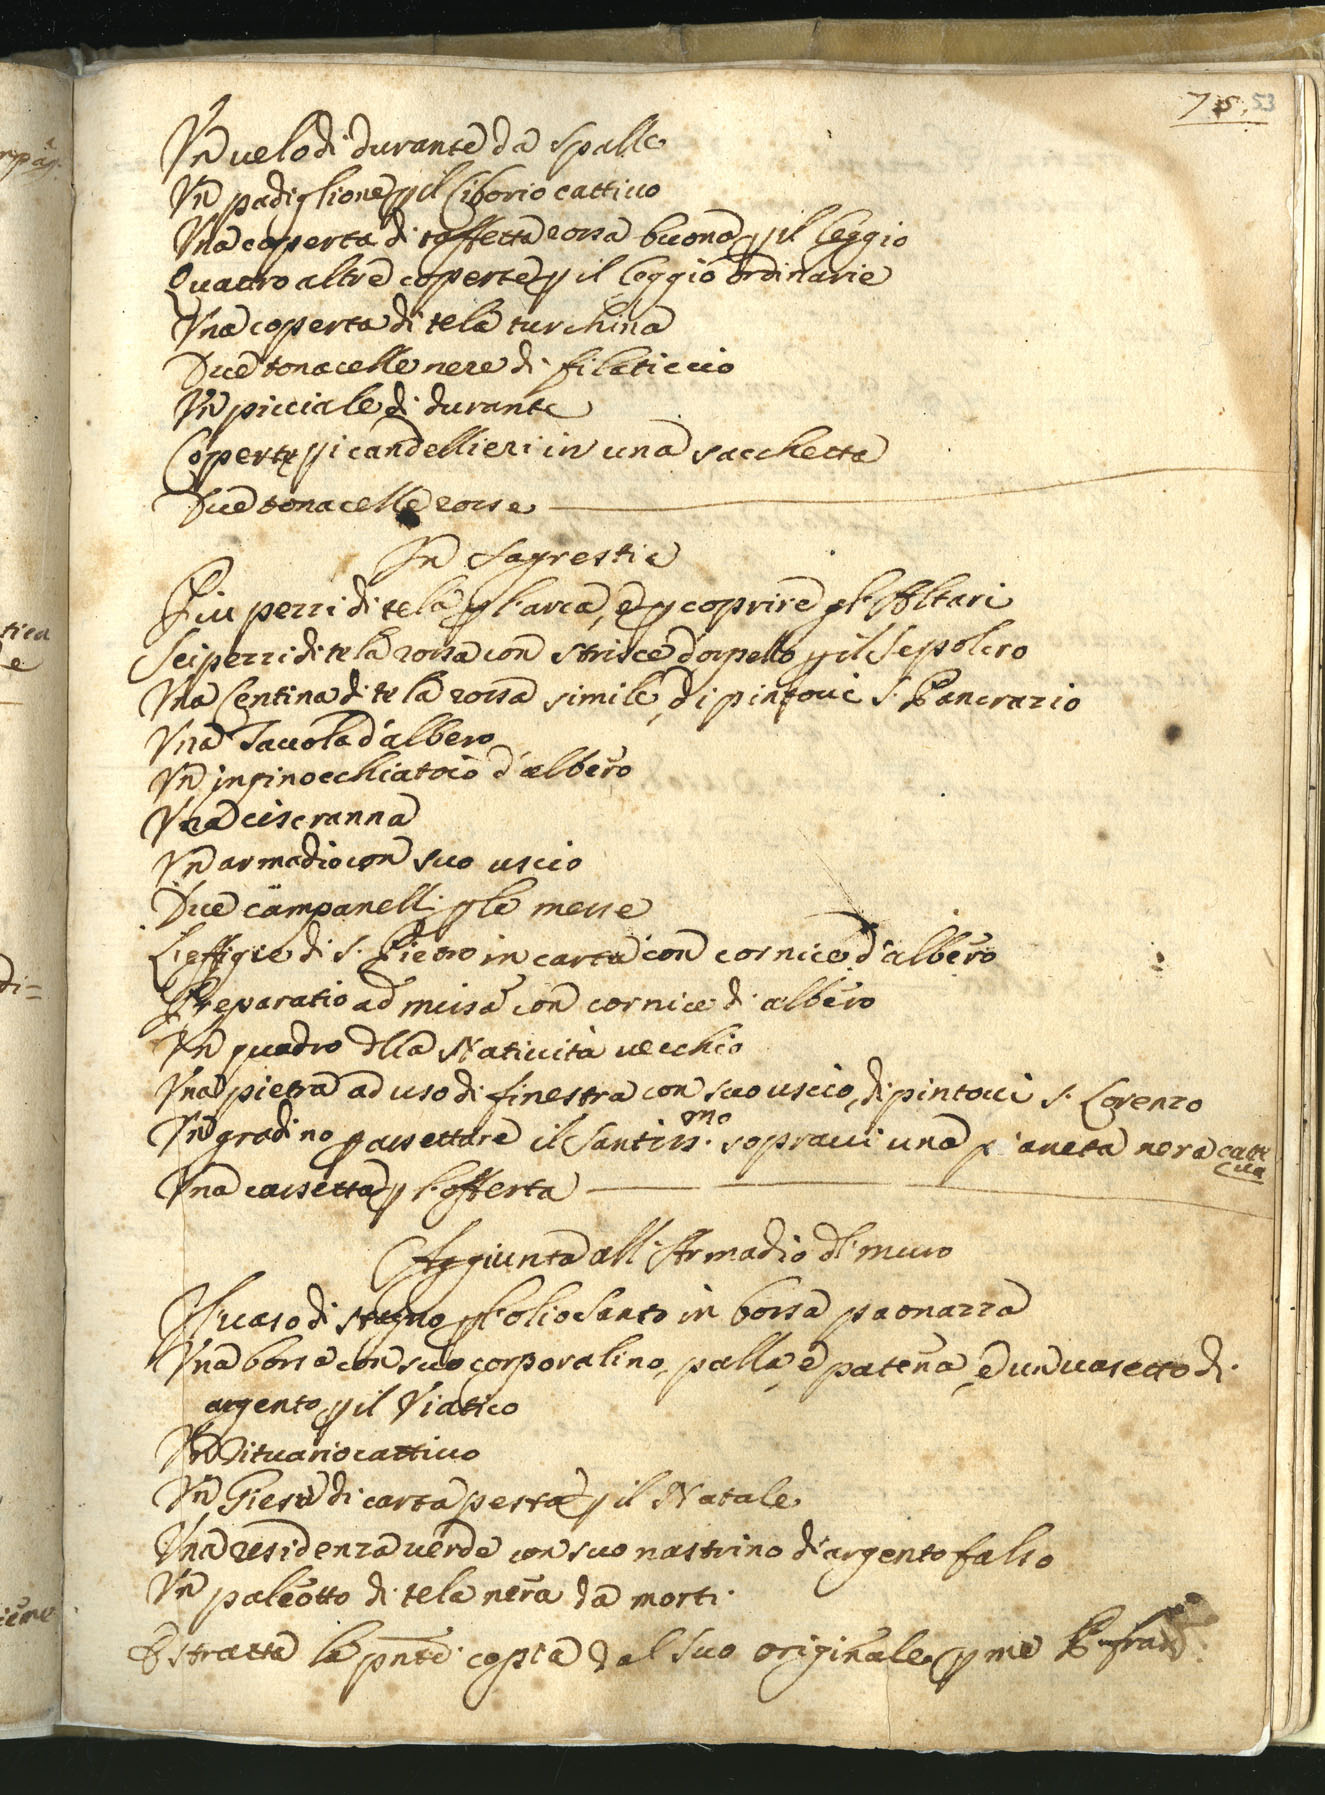 75. 53
Un velo di durante da spalle
Un padiglione p il Ciborio cattivo
Una coperta di taffetta rossa buona p il leggio
Quattro altre coperte p il leggio ordinarie
Una coperta di tela turchina
Due tonacelle nere di filaticcio
Un picciale di durante
Coperte p i candellieri in una sacchetta
Due tonacelle rosse
In Sagrestia
Piu pezzi di tela p l'arca, e p coprire gl'Altari
Sei pezzi di tela rossa con strisce d'orpello p il Sepolcro
Una Centina di tela rossa simile, dipintovi S. Pancrazio
Una Tavola d'albero
Un inginocchiatoio d'albero
Una ciscranna
Un armadio con suo uscio
Due campanelli p le messe
L'effigie di S. Pietro in carta con cornice d'albero
Preparatio ad missa con cornice di albero
Un quadro dlla Natività vecchio
Una pietra ad uso di finestra con suo uscio, dipintovi S. Lorenzo
Un gradino p assettare il Santiss.mo sopravi una pianeta nera catti
cva
Una cassetta p l'offerta
Aggiunta all'Armadio dl muro
Un vaso di stagno p l'olio Santo in borsa paonazza
Una borsa con suo corporalino, palla, e patena, e un vasetto di
argento p il Viatico
Un Rituario cattivo
Un Giesù di carta pesta p il Natale
Una residenza verde con suo nastrino di argento falso
Un paleotto di tela nera da morti
Estratta la pnte copia dal suo originale p me